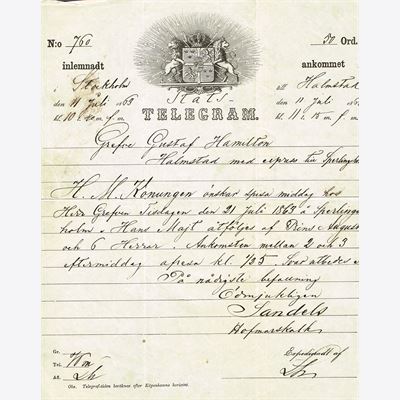 N:o 760
50 Ord.
inlemnadt
ankommet
i Stockholm
till Halmstad
den 11 Juli 1863
den 11 Juli
kl. 10 f. m.
kl. 11 : 15 m. f. m.
Stats-
TELEGRAM.
Grefve Gustaf Hamilton
Halmstad med express till
H. M. Konungen önskar spisa middag hos
Herr Grefven Tisdagen den 21 Juli 1863 å Sperlings-
holm. Hans Majt åtföljes af Prins August
och 6 Herrar. Ankomsten mellan 2 och 3
eftermiddag afresa kl. 725. Svar utbedes
På nådigste befallning
Ödmjukligen
Sandels
Hofmarskalk
Gr.
Tel.
Expedieradt af
Af.
Obs. Telegraf-tiden beräknas efter Köpenhamns horizont.